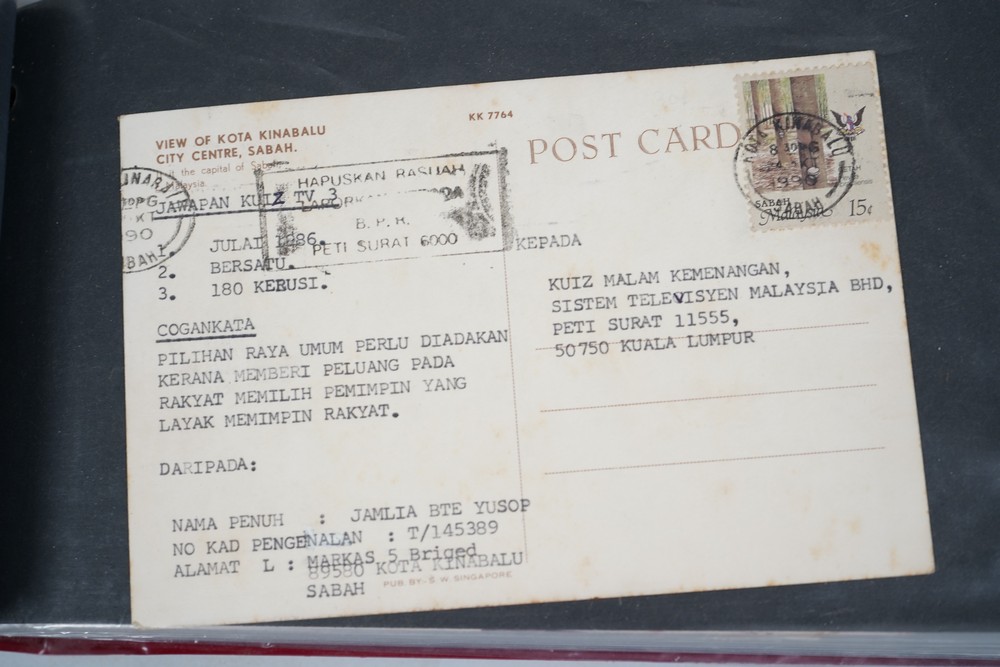 VIEW OF KOTA KINABALU
CITY CENTRE, SABAH.
the capital of
KK 7764
POST CARD
HAPUSKAN RASUAH
B. P. R.
PETI SURAT 6000
KOTA KINABALU
SABAH
SABAH
Malaysia 15¢
JAWAPAN KUIZ TV 3
1. JULAI 1986.
2. BERSATU.
3. 180 KERUSI.
COGANKATA
PILIHAN RAYA UMUM PERLU DIADAKAN
KERANA MEMBERI PELUANG PADA
RAKYAT MEMILIH PEMIMPIN YANG
LAYAK MEMIMPIN RAKYAT.
DARIPADA:
NAMA PENUH : JAMLIA BTE YUSOP
NO KAD PENGENALAN : T/145389
ALAMAT L : MARKAS 5 Briged
89580 KOTA KINABALU
SABAH
PUB. BY:- S. W. SINGAPORE
KEPADA
KUIZ MALAM KEMENANGAN,
SISTEM TELEVISYEN MALAYSIA BHD,
PETI SURAT 11555,
50750 KUALA LUMPUR